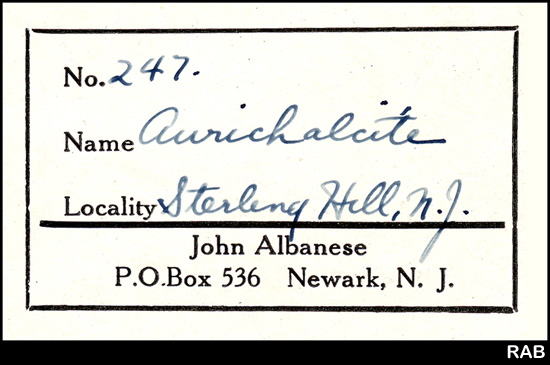 No. 247.
Name Aurichalcite
Locality Sterling Hill, N.J.
John Albanese
P.O.Box 536 Newark, N. J.
RAB